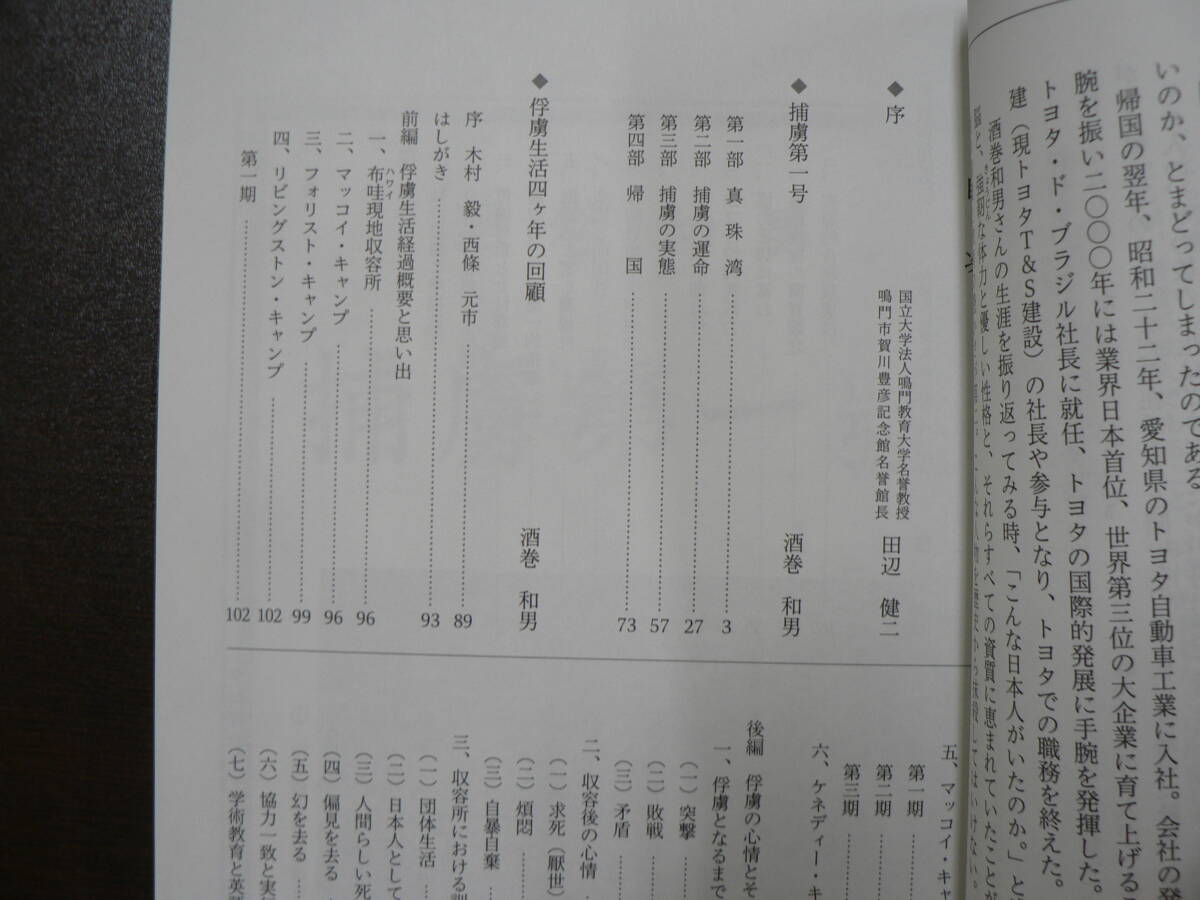 いのか、とまどってしまったのである
帰国の翌年、昭和二十二年、愛知県のトヨタ自動車工業に入社。会社の発
腕を振い二〇〇〇年には業界日本首位、世界第三位の大企業に育て上げるこ
トヨタ・ド・ブラジル社長に就任、トヨタの国際的発展に手腕を発揮した。
建（現トヨタT&S建設）の社長や参与となり、トヨタでの職務を終えた。
酒巻和男さんの生涯を振り返ってみる時、「こんな日本人がいたのか。」と
強靭な体力と優しい性格と、それらすべての資質に恵まれていたことが
◆ 序
国立大学法人鳴門教育大学名誉教授
鳴門市賀川豊彦記念館名誉館長 田辺 健二
◆ 捕虜第一号 酒巻 和男
第一部 真珠湾 3
第二部 捕虜の運命 27
第三部 捕虜の実態 57
第四部 帰国 73
◆ 俘虜生活四ヶ年の回顧 酒巻 和男
序 木村 毅・西條 元市 89
はしがき 93
前編 俘虜生活経過概要と思い出
一、布哇現地収容所 96
ハワイ
二、マッコイ・キャンプ 96
三、フォリスト・キャンプ 99
四、リビングストン・キャンプ 102
第一期 102
五、マッコイ・キャ
第一期
第二期
第三期
六、ケネディー・キ
後編 俘虜の心情とそ
一、俘虜となるまで
（一）突撃
（二）敗戦
（三）矛盾
二、収容後の心情
（一）求死（厭世）
（二）煩悶
（三）自暴自棄
三、収容所における訓
（一）団体生活
（二）日本人として
（三）人間らしい死
（四）偏見を去る
（五）幻を去る
（六）協力一致と実
（七）学術教育と英